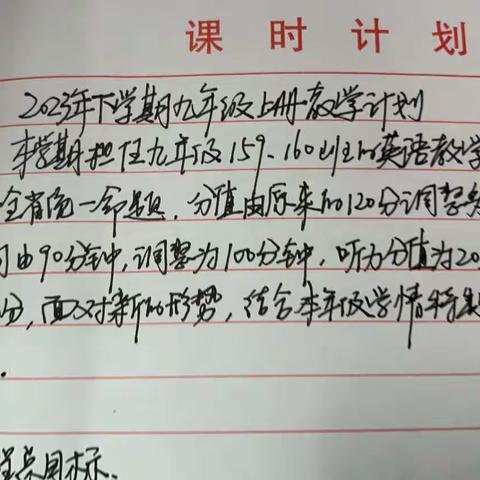 课时计划
2023年下学期九年级上册教学计划
本学期担任九年级159、160班的英语教学
全省统一命题,分值由原来的120分调整
由90分钟,调整为100分钟,听力分值为20
分,面对新的形势,结合本年级学情特
目标、